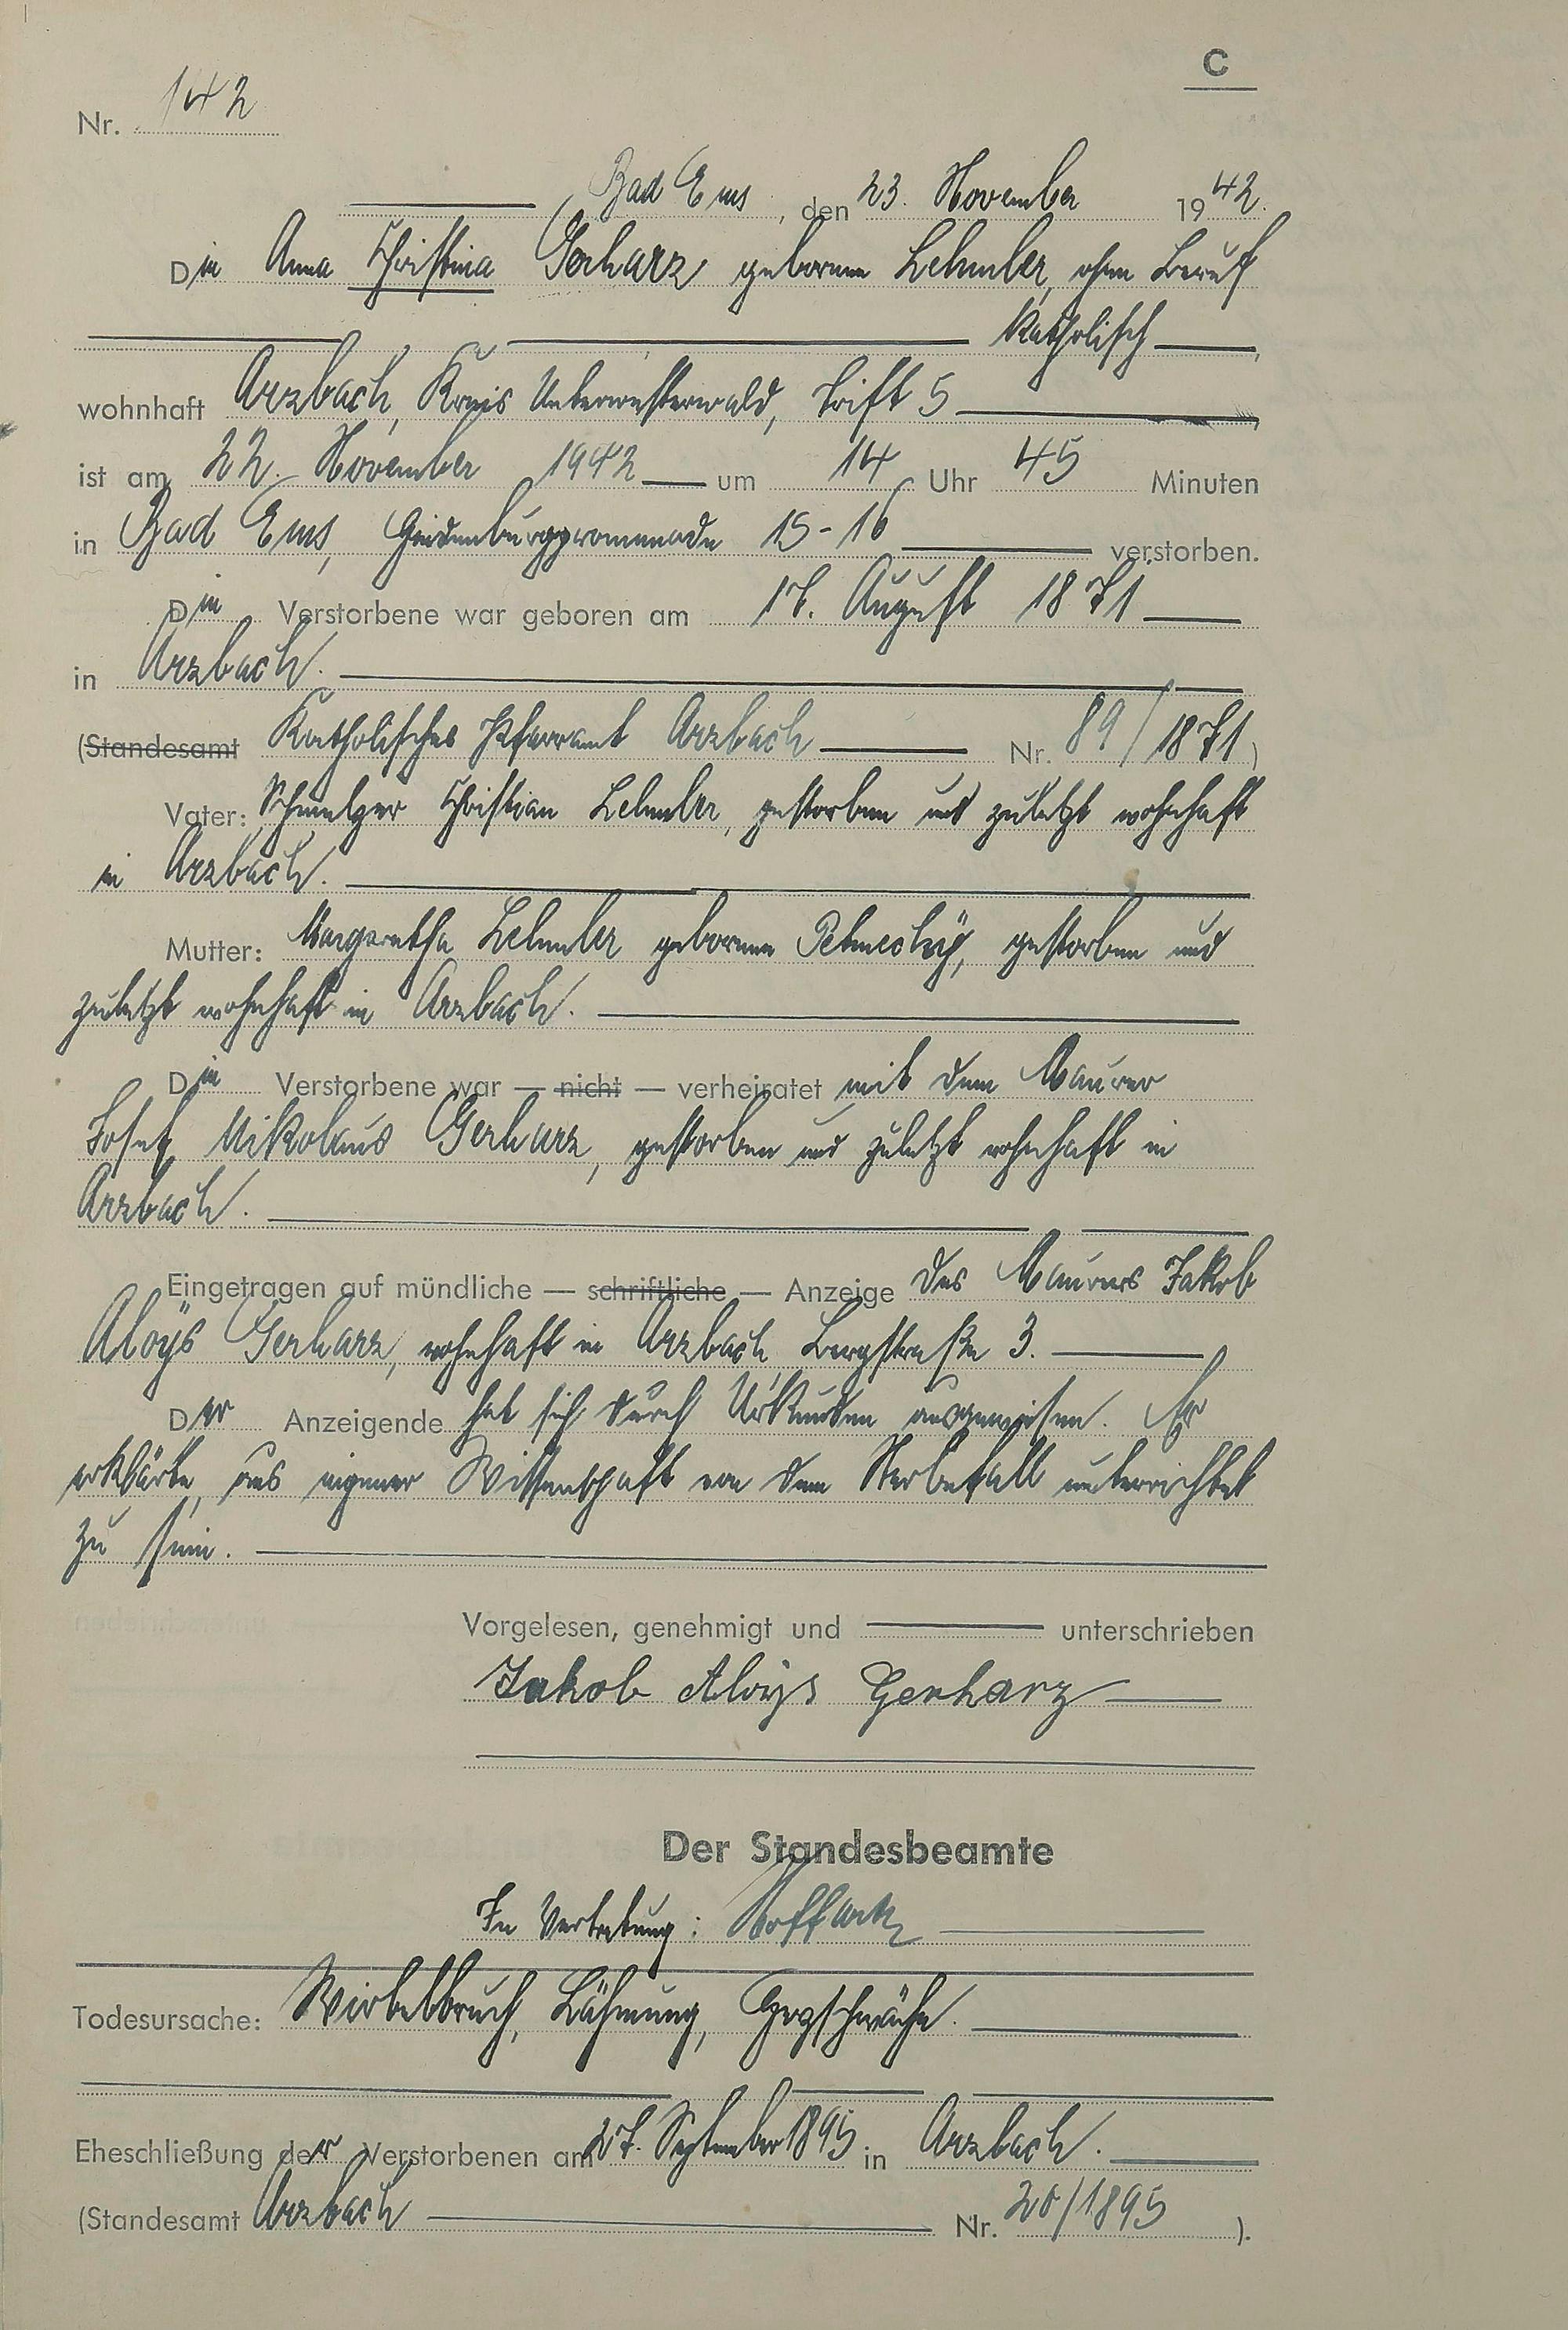 C
Nr. 142
Bad Ems, den 23. November 1942.
Die Anna Christina Gerharz geborene Lehmler, ohne Beruf
katholisch,
wohnhaft Arzbach, Kreis Unterwesterwald, Trift 5
ist am 22. November 1942 um 14 Uhr 45 Minuten
in Bad Ems, 15-16 verstorben.
Die Verstorbene war geboren am 17. August 1871
in Arzbach.
(Standesamt Katholisches Pfarramt Arzbach Nr. 89/1871)
Vater: Schmelzer Christian Lehmler, gestorben und zuletzt wohnhaft
in Arzbach.
Mutter: Margaretha Lehmler geborene gestorben und
zuletzt wohnhaft in Arzbach.
Die Verstorbene war — nicht — verheiratet mit dem Maurer
Josef Nikolaus Gerharz, gestorben und zuletzt wohnhaft in
Arzbach.
Eingetragen auf mündliche — schriftliche — Anzeige des Maurers Jakob
Aloys Gerharz, wohnhaft in Arzbach, Bergstraße 3.
Der Anzeigende hat sich durch Urkunden ausgewiesen. Er
erklärte, aus eigener Wissenschaft von dem Sterbefall unterrichtet
zu sein.
Vorgelesen, genehmigt und unterschrieben
Jakob Aloys Gerharz
Der Standesbeamte
In Vertretung:
Todesursache: Wirbelbruch, Lähmung, Herzschwäche.
Eheschließung der Verstorbenen am 27. September 1895 in Arzbach.
(Standesamt Arzbach Nr. 20/1895).